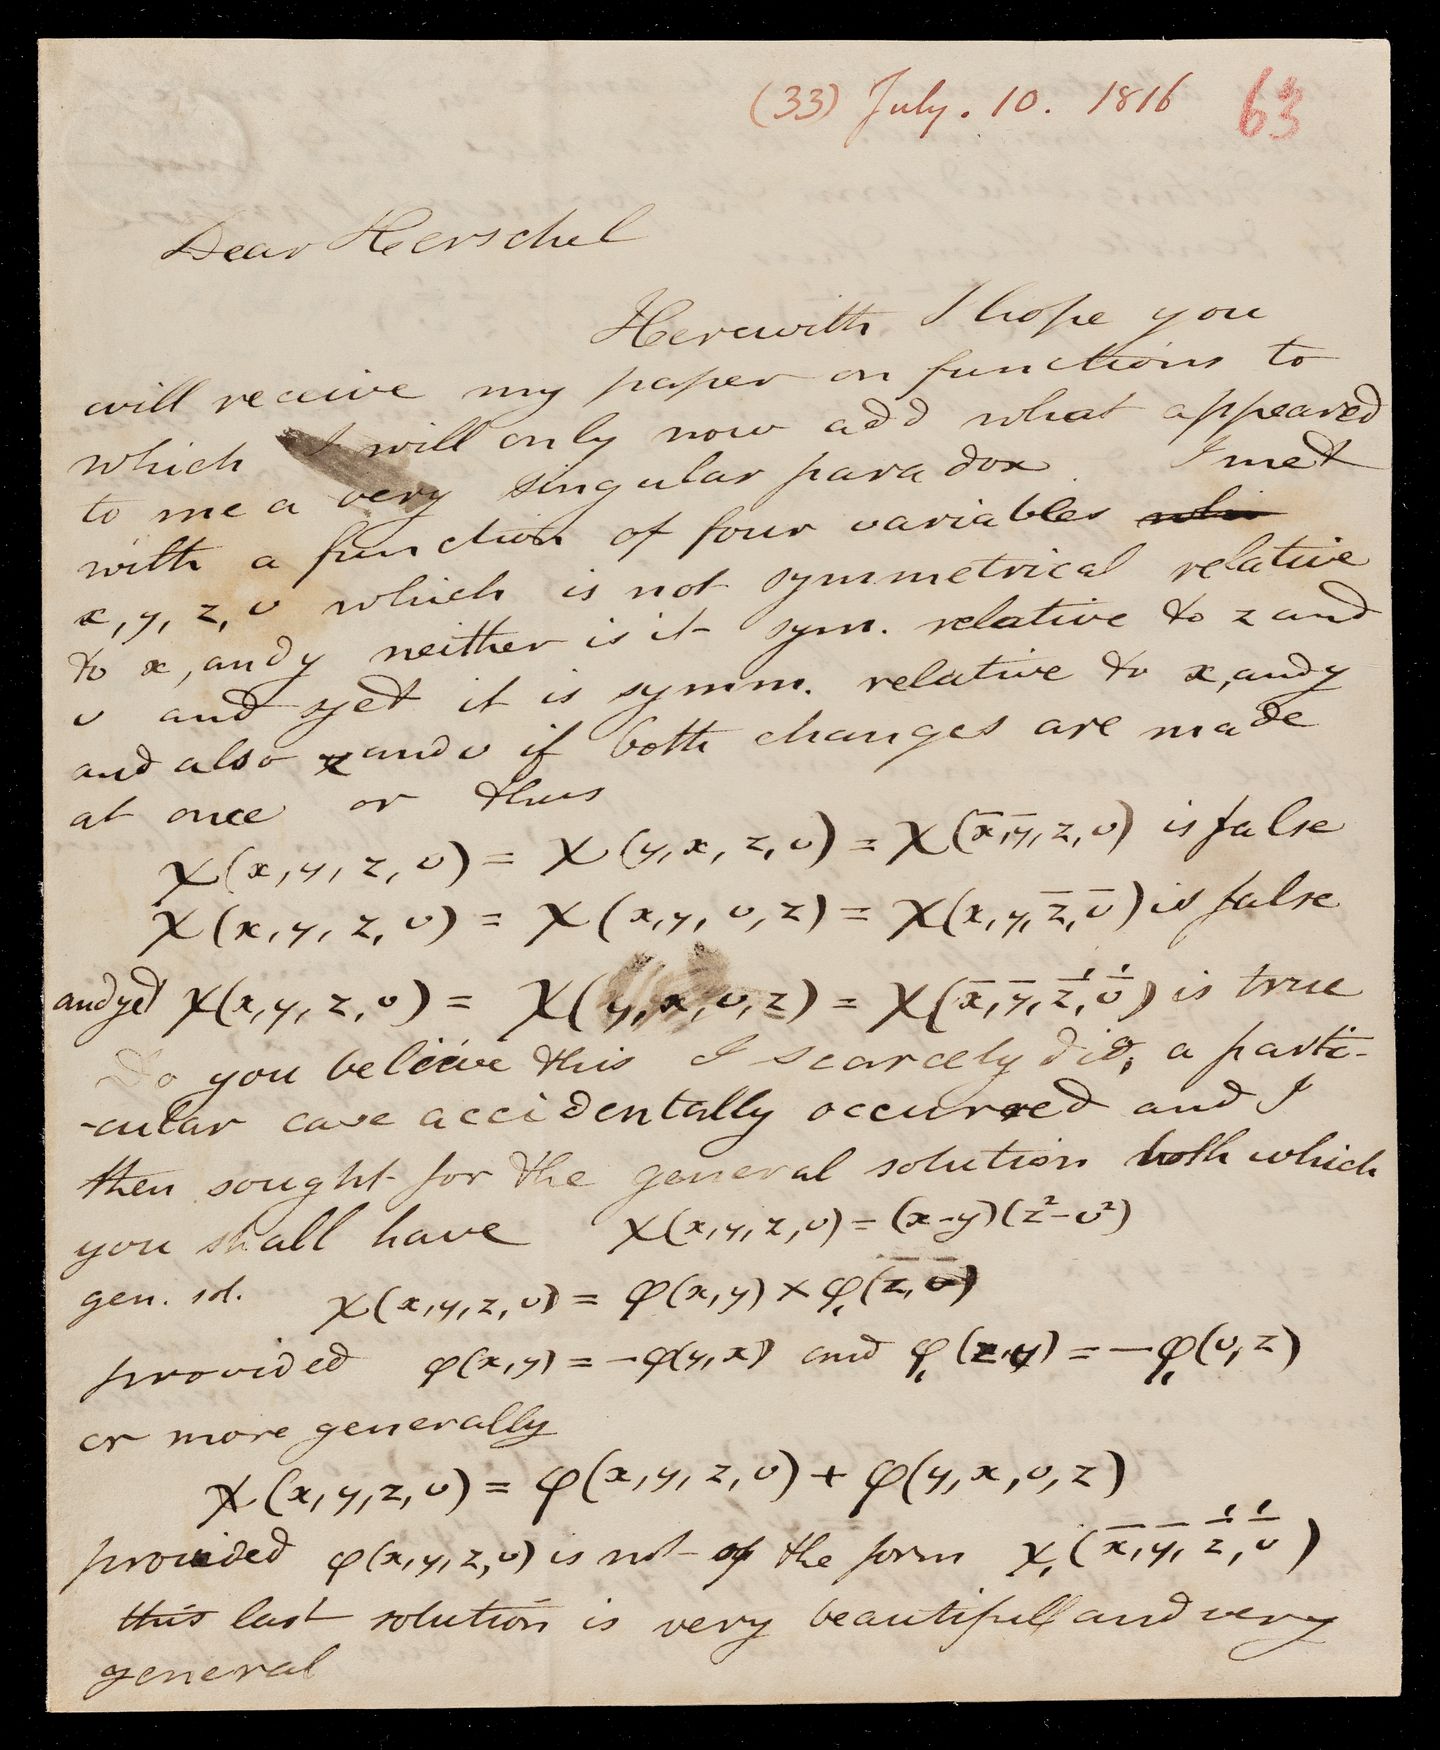 (33) July. 10. 1816 63
Dear Herschel
Herewith I hope you
will receive my paper on functions to
which I will only now add what appeared
to me a very singular paradox I met
with a function of four variables whi
x, y, z, v which is not symmetrical relative
to x, and y neither is it sym. relative to z and
v and yet it is symm. relative to x, and y
and also z and v if both changes are made
at once or thus
χ(x, y, z, v) = χ(y, x, z, v) = χ(x̅, y̅, z, v) is false
χ(x, y, z, v) = χ(x, y, v, z) = χ(x, y, z̅, v̅) is false
and yet χ(x, y, z, v) = χ(y, x, v, z) = χ(x̅, y̅, z̅¹, v̅¹) is true
Do you believe this I scarcely did, a parti-
-cular case accidentally occurred and I
then sought for the general solution both which
you shall have χ(x, y, z, v) = (x-y)(z²-v²)
gen. sol. χ(x, y, z, v) = φ(x, y) × φ₁(z̅, v̅)
provided φ(x, y) = -φ(y, x) and φ₁(z, v) = -φ₁(v, z)
or more generally
χ(x, y, z, v) = φ(x, y, z, v) + φ(y, x, v, z)
provided φ(x, y, z, v) is not of the form χ₁(x̅, y̅, z̅¹, v̅¹)
this last solution is very beautifull and very
general